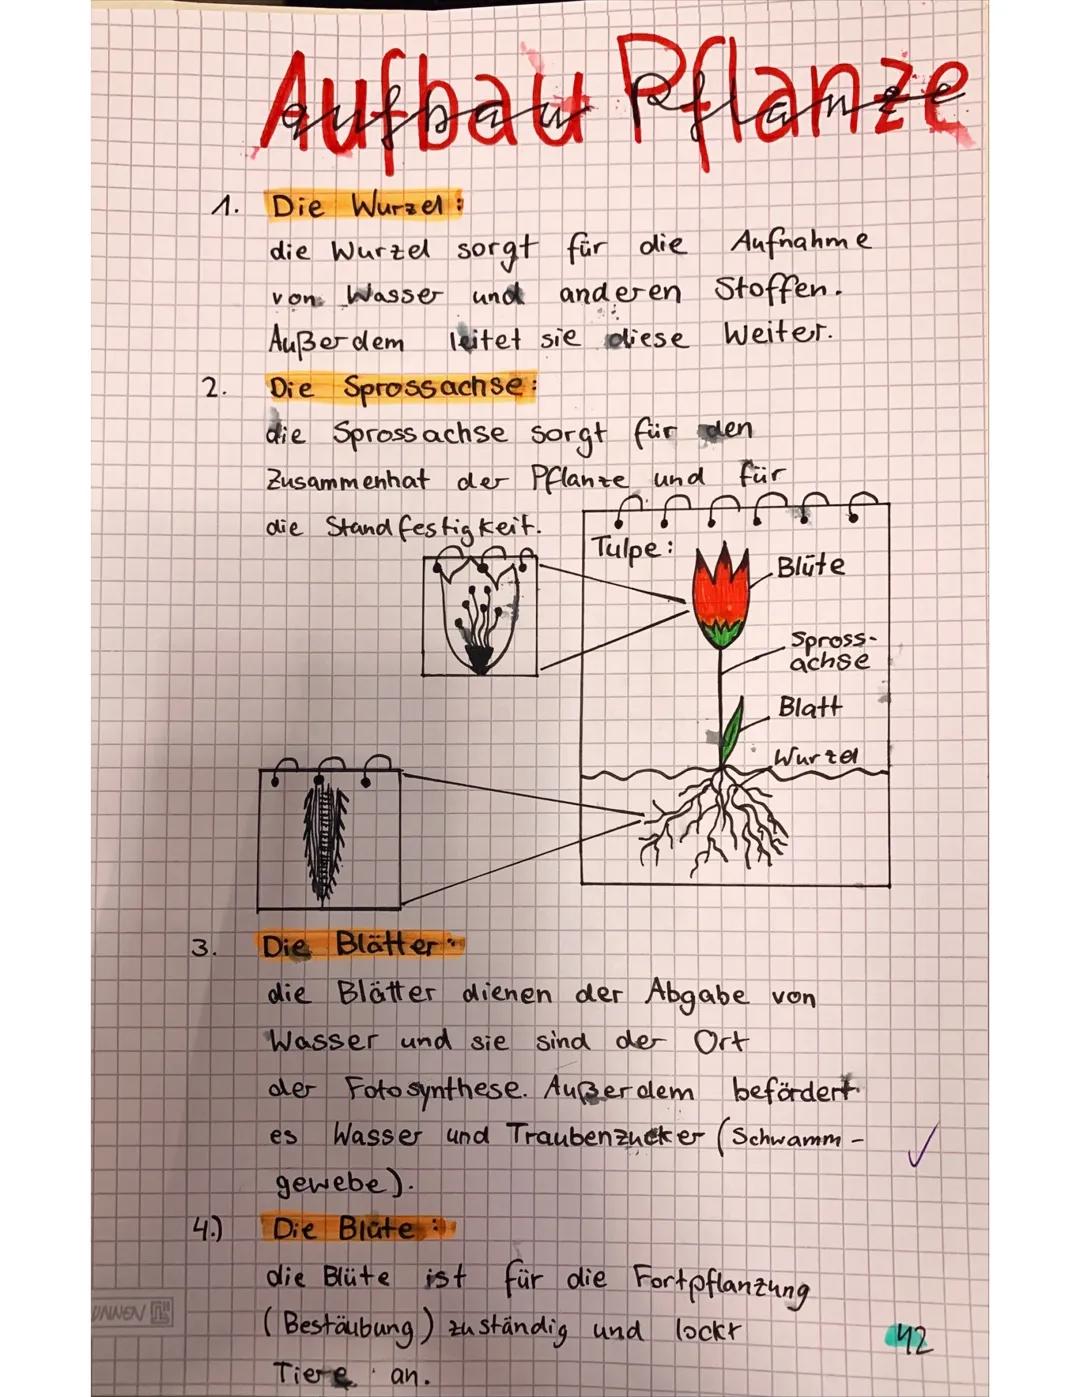 Aufbau Pflanze
1. Die Wurzel:
die Wurzel sorgt für die Aufnahme
von Wasser und anderen Stoffen.
Außerdem leitet sie diese Weiter.
2. Die Sprossachse:
die Sprossachse sorgt für den
Zusammenhat der Pflanze und für
die Standfestigkeit.
Tulpe:
Blüte
Spross-
achse
Blatt
Wurzel
3. Die Blätter:
die Blätter dienen der Abgabe von
Wasser und sie sind der Ort
der Fotosynthese. Außerdem befördert
es Wasser und Traubenzucker (Schwamm-
gewebe).
4.) Die Blüte:
die Blüte ist für die Fortpflanzung
(Bestäubung) zuständig und lockt
Tiere an.
42